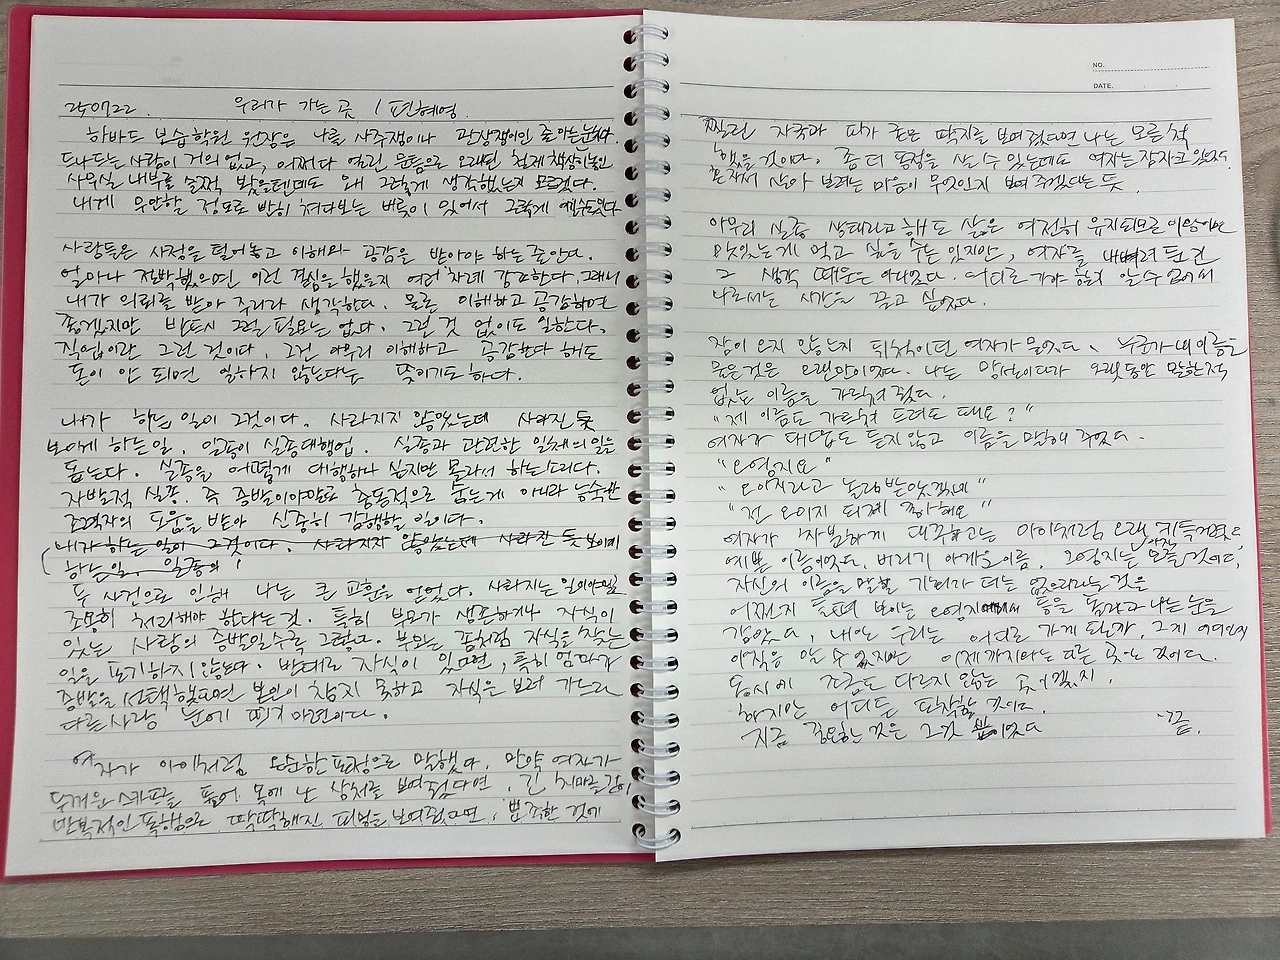 240722. 우리가 가는 곳 / 편혜영.
하바드 보습학원 원장은 나를 사주쟁이나 관상쟁이인 줄 아는 눈치다.
드나드는 사람이 거의 없고, 어쩌다 열린 문틈으로 오래된 철제 책상이 놓인
사무실 내부를 슬쩍 봤을텐데도 왜 그렇게 생각했는지 모르겠다.
내게 무안할 정도로 빤히 쳐다보는 버릇이 있어서 그렇게
사람들은 사정을 털어놓고 이해와 공감을 받아야 하는 줄 안다.
얼마나 절박했으면 이런 결심을 했을지 여러 차례 강조한다. 그래니
내가 의뢰를 받아 주리라 생각한다. 물론 이해하고 공감하면
좋겠지만 반드시 그럴 필요는 없다. 그런 것 없이도 일한다.
직업이란 그런 것이다. 그건 아무리 이해하고 공감한다 해도
돈이 안 되면 일하지 않는다는 뜻이기도 하다.
내가 하는 일이 그것이다. 사라지지 않았는데 사라진 듯
보이게 하는 일. 일종의 실종대행업. 실종과 관련한 일체의 일을
돕는다. 실종을 어떻게 대행하나 싶지만 몰라서 하는 소리다.
자발적 실종. 즉 증발이야말로 충동적으로 숨는게 아니라 능숙한
조력자의 도움을 받아 신중히 감행할 일이다.
(내가 하는 일이 그것이다. 사라지지 않았는데 사라진 듯 보이게
하는 일. 일종의
두 사건으로 인해 나는 큰 교훈을 얻었다. 사라지는 일이야말로
조용히 처리해야 한다는 것. 특히 부모가 생존하거나 자식이
있는 사람의 증발일수록 그렇다. 부모는 좀처럼 자식을 찾는
일을 포기하지 않는다. 반대로 자식이 있다면, 특히 엄마가
증발을 선택했다면 본인이 참지 못하고 자식을 보러 가느라
다른 사람 눈에 띄기 마련이다.
여자가 아이처럼 온순한 표정으로 말했다. 만약 여자가
두꺼운 스카프를 풀어 목에 난 상처를 보여줬다면, 긴 치마를 걷어
반복적인 폭행으로 딱딱해진 피멍을 보여줬다면, 뾰족한 것에
찔린 자국과 피가 굳은 딱지를 보여줬다면 나는 모른 척
했을 것이다. 좀 더 동정을 살 수 있는데도 여자는 잠자코 있었다.
혼자서 살아 보려는 마음이 무엇인지 보여 주겠다는 듯.
아무리 실종 상태라고 해도 삶은 여전히 유지되므로
맛있는 게 먹고 싶을 수는 있지만, 여자를 내버려 둔 건
그 생각 때문은 아니었다. 어디로 가야 할지 알 수 없어서
나로서는 시간을 끌고 싶었다.
잠이 오지 않는지 뒤척이던 여자가 물었다. 누군가 내 이름을
물은 것은 오랜만이었다. 나는 망설이다가 오랫동안 말한 적
없는 이름을 가르쳐 줬다.
"제 이름도 가르쳐 드려도 돼요?"
여자가 대답도 듣지 않고 이름을 말해 주었다.
"오영지요"
"오이지라고 놀림 받았겠네"
"전 오이지 되게 좋아해요"
여자가 차분하게 대꾸하고는 아이처럼 오래 키득거렸다.
예쁜 이름이었다. 버리기 아까운 이름. 오영지는 아직 모를 것이다,
자신의 이름을 말할 기회가 더는 없으리라는 것을
어쩐지 슬퍼 보이는 오영지에게서 등을 돌리고 나는 눈을
감았다. 내일 우리는 어디로 가게 될까. 그게 어디인지
아직은 알 수 없지만 이제까지와는 다른 곳일 것이다.
동시에 조금도 다르지 않은 곳이겠지.
하지만 어디든 도착할 것이다.
지금 중요한 것은 그것 뿐이었다 끝.